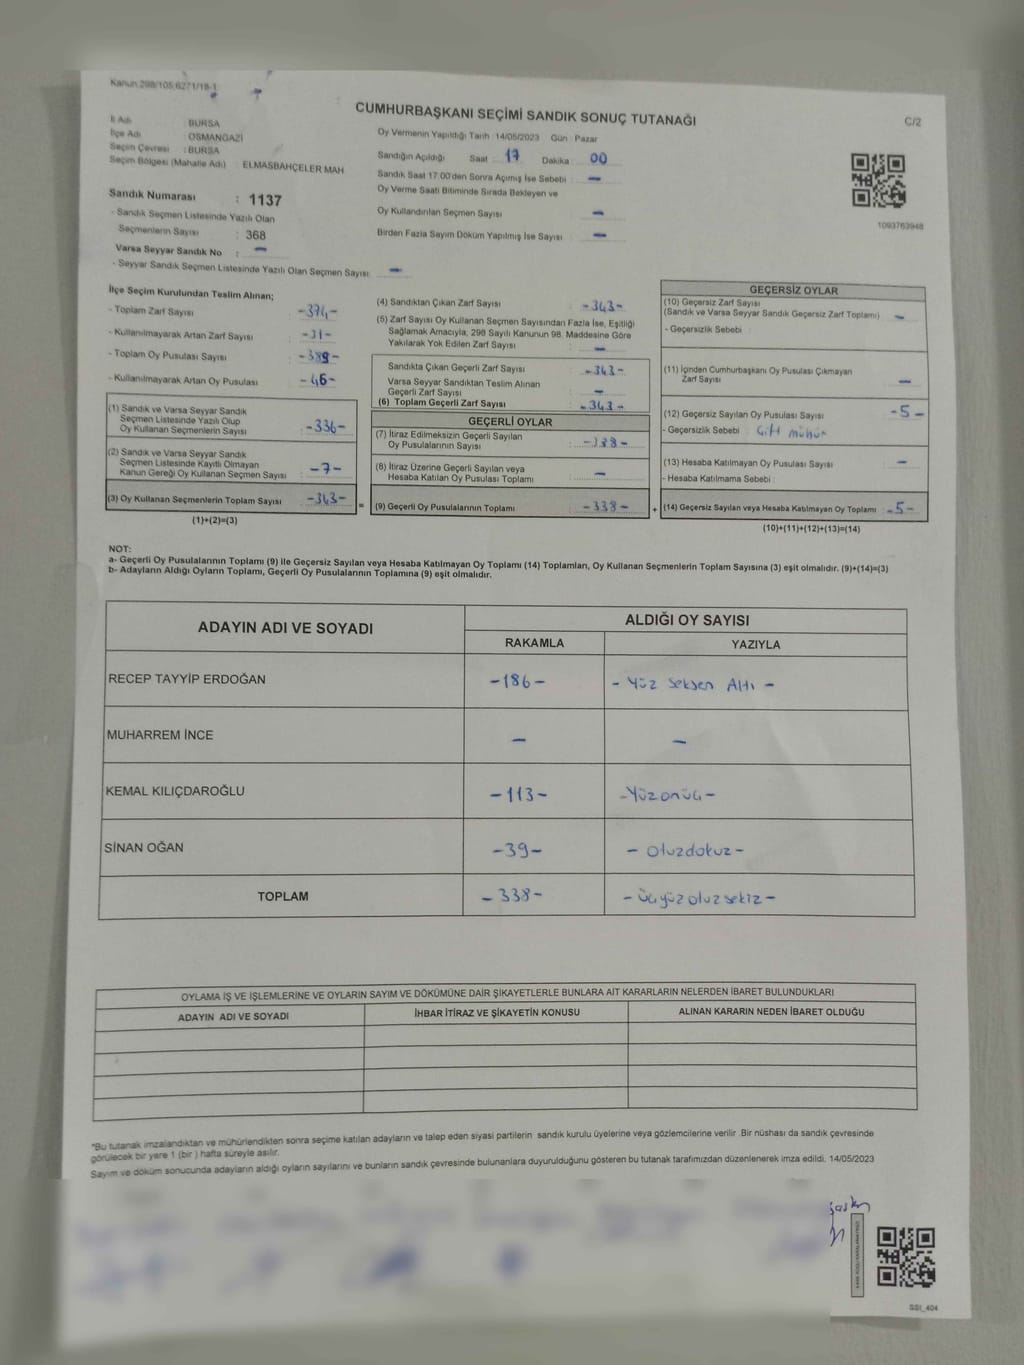 Kanun:298/105,6271/18-1
CUMHURBAŞKANI SEÇİMİ SANDIK SONUÇ TUTANAĞI
C/2
İl Adı : BURSA
İlçe Adı : OSMANGAZİ
Seçim Çevresi : BURSA
Seçim Bölgesi (Mahalle Adı) : ELMASBAHÇELER MAH
Sandık Numarası : 1137
- Sandık Seçmen Listesinde Yazılı Olan
Seçmenlerin Sayısı : 368
Varsa Seyyar Sandık No : -
- Seyyar Sandık Seçmen Listesinde Yazılı Olan Seçmen Sayısı: -
Oy Vermenin Yapıldığı Tarih :14/05/2023 Gün : Pazar
Sandığın Açıldığı Saat : 17 Dakika : 00
Sandık Saat 17:00'den Sonra Açımış İse Sebebi : -
Oy Verme Saati Bitiminde Sırada Bekleyen ve
Oy Kullandırılan Seçmen Sayısı : -
Birden Fazla Sayım Döküm Yapılmış İse Sayısı : -
1093763948
İlçe Seçim Kurulundan Teslim Alınan;
- Toplam Zarf Sayısı : -374-
- Kullanılmayarak Artan Zarf Sayısı : -31-
- Toplam Oy Pusulası Sayısı : -389-
- Kullanılmayarak Artan Oy Pusulası : -46-
(1) Sandık ve Varsa Seyyar Sandık
Seçmen Listesinde Yazılı Olup
Oy Kullanan Seçmenlerin Sayısı : -336-
(2) Sandık ve Varsa Seyyar Sandık
Seçmen Listesinde Kayıtlı Olmayan
Kanun Gereği Oy Kullanan Seçmen Sayısı : -7-
(3) Oy Kullanan Seçmenlerin Toplam Sayısı : -343- =
(1)+(2)=(3)
(4) Sandıktan Çıkan Zarf Sayısı : -343-
(5) Zarf Sayısı Oy Kullanan Seçmen Sayısından Fazla İse, Eşitliği
Sağlamak Amacıyla, 298 Sayılı Kanunun 98. Maddesine Göre
Yakılarak Yok Edilen Zarf Sayısı : -
Sandıkta Çıkan Geçerli Zarf Sayısı : -343-
Varsa Seyyar Sandıktan Teslim Alınan
Geçerli Zarf Sayısı : -
(6) Toplam Geçerli Zarf Sayısı : -343-
GEÇERLİ OYLAR
(7) İtiraz Edilmeksizin Geçerli Sayılan
Oy Pusulalarının Sayısı : -338-
(8) İtiraz Üzerine Geçerli Sayılan veya
Hesaba Katılan Oy Pusulası Toplamı : -
(9) Geçerli Oy Pusulalarının Toplamı : -338- +
GEÇERSİZ OYLAR
(10) Geçersiz Zarf Sayısı
(Sandık ve Varsa Seyyar Sandık Geçersiz Zarf Toplamı) : -
- Geçersizlik Sebebi :
(11) İçinden Cumhurbaşkanı Oy Pusulası Çıkmayan
Zarf Sayısı : -
(12) Geçersiz Sayılan Oy Pusulası Sayısı : -5-
- Geçersizlik Sebebi : Çift mühür
(13) Hesaba Katılmayan Oy Pusulası Sayısı : -
- Hesaba Katılmama Sebebi :
(14) Geçersiz Sayılan veya Hesaba Katılmayan Oy Toplamı : -5-
(10)+(11)+(12)+(13)=(14)
NOT:
a- Geçerli Oy Pusulalarının Toplamı (9) ile Geçersiz Sayılan veya Hesaba Katılmayan Oy Toplamı (14) Toplamları, Oy Kullanan Seçmenlerin Toplam Sayısına (3) eşit olmalıdır. (9)+(14)=(3)
b- Adayların Aldığı Oyların Toplamı, Geçerli Oy Pusulalarının Toplamına (9) eşit olmalıdır.
ADAYIN ADI VE SOYADI
ALDIĞI OY SAYISI
RAKAMLA YAZIYLA
RECEP TAYYİP ERDOĞAN -186- - Yüz seksen Altı -
MUHARREM İNCE - -
KEMAL KILIÇDAROĞLU -113- -Yüzonüç-
SİNAN OĞAN -39- - otuzdokuz -
TOPLAM -338- - Üçyüzotuzsekiz -
OYLAMA İŞ VE İŞLEMLERİNE VE OYLARIN SAYIM VE DÖKÜMÜNE DAİR ŞİKAYETLERLE BUNLARA AİT KARARLARIN NELERDEN İBARET BULUNDUKLARI
ADAYIN ADI VE SOYADI İHBAR İTİRAZ VE ŞİKAYETİN KONUSU ALINAN KARARIN NEDEN İBARET OLDUĞU
*Bu tutanak imzalandıktan ve mühürlendikten sonra seçime katılan adayların ve talep eden siyasi partilerin sandık kurulu üyelerine veya gözlemcilerine verilir .Bir nüshası da sandık çevresinde
görülecek bir yere 1 (bir ) hafta süreyle asılır.
Sayım ve döküm sonucunda adayların aldığı oyların sayılarını ve bunların sandık çevresinde bulunanlara duyurulduğunu gösteren bu tutanak tarafımızdan düzenlenerek imza edildi. 14/05/2023
SSI_404